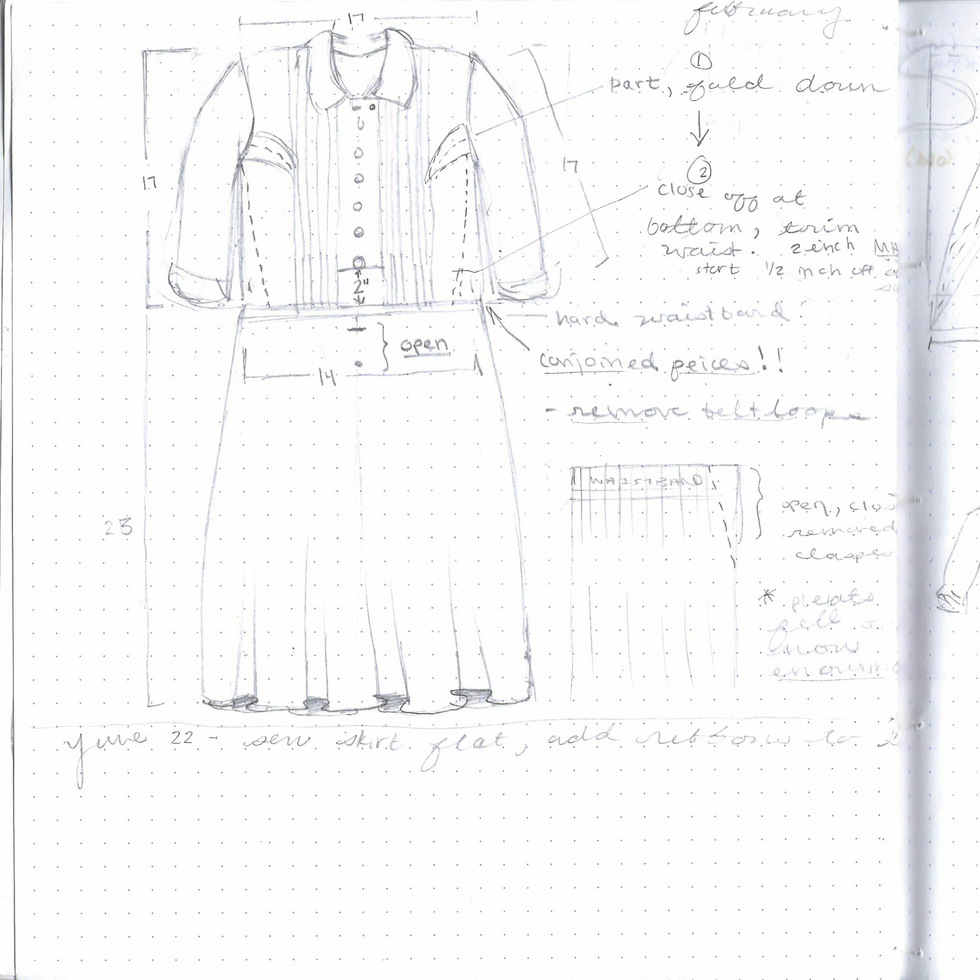 17
february
①
part, fold down
②
close off at
bottom, trim
waist. 2 inch
start 1/2 inch off
17
17
2"
hard waistband
open
conjoined peices!!
14
- remove belt loops
WAISTBAND
open,
removed
23
* pleats
june 22 - sew skirt flat, add ribbons to